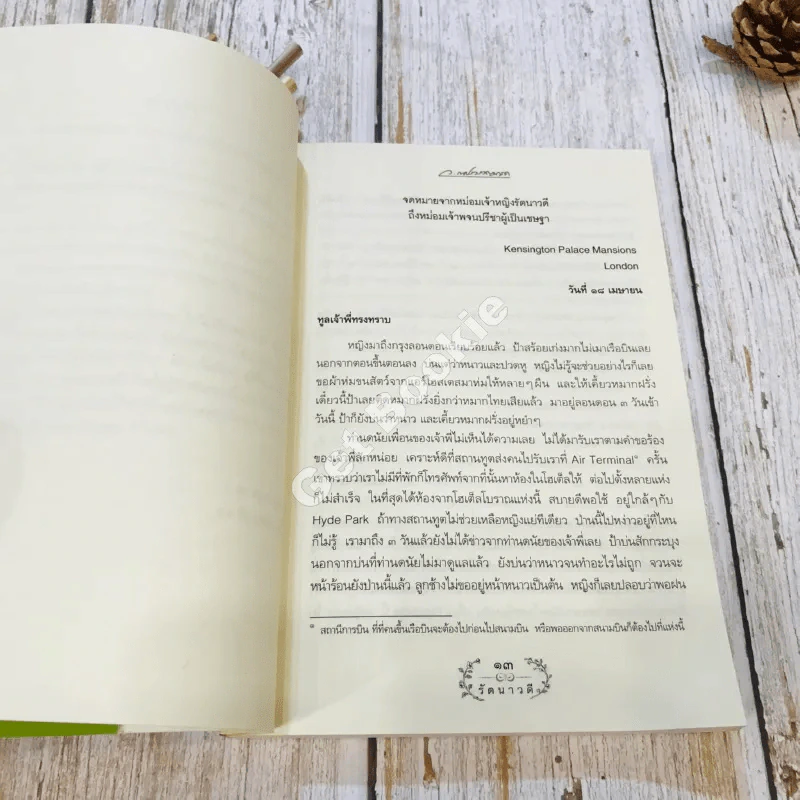 ว. ณประมวญมารค
จดหมายจากหม่อมเจ้าหญิงรัตนาวดี
ถึงหม่อมเจ้าพจนปรีชาผู้เป็นเชษฐา
Kensington Palace Mansions
London
วันที่ ๑๘ เมษายน
ทูลเจ้าพี่ทรงทราบ
หญิงมาถึงกรุงลอนดอนเรียบร้อยแล้ว ป้าสร้อยเก่งมากไม่เมาเรือบินเลย
นอกจากตอนขึ้นตอนลง บ่นแต่ว่าหนาวและปวดหู หญิงไม่รู้จะช่วยอย่างไรก็เลย
ขอผ้าห่มขนสัตว์จากแอร์โฮสเตสมาห่มให้หลายๆ ผืน และให้เคี้ยวหมากฝรั่ง
เดี๋ยวนี้ป้าเลยติดหมากฝรั่งยิ่งกว่าหมากไทยเสียแล้ว มาอยู่ลอนดอน ๓ วันเข้า
วันนี้ ป้าก็ยังบ่นว่าหนาว และเคี้ยวหมากฝรั่งอยู่หยำๆ
ท่านดนัยเพื่อนของเจ้าพี่ไม่เห็นได้ความเลย ไม่ได้มารับเราตามคำขอร้อง
ของเจ้าพี่สักหน่อย เคราะห์ดีที่สถานทูตส่งคนไปรับเราที่ Air Terminal* ครั้น
เขาทราบว่าเราไม่มีที่พักก็โทรศัพท์จากที่นั้นหาห้องในโฮเต็ลให้ ต่อไปตั้งหลายแห่ง
ก็ไม่สำเร็จ ในที่สุดได้ห้องจากโฮเต็ลโบราณแห่งนี้ สบายดีพอใช้ อยู่ใกล้ๆ กับ
Hyde Park ถ้าทางสถานทูตไม่ช่วยเหลือหญิงแย่ทีเดียว ป่านนี้ไปหง่าวอยู่ที่ไหน
ก็ไม่รู้ เรามาถึง ๓ วันแล้วยังไม่ได้ข่าวจากท่านดนัยของเจ้าพี่เลย ป้าบ่นสักกระบุง
นอกจากบ่นที่ท่านดนัยไม่มาดูแลแล้ว ยังบ่นว่าหนาวจนทำอะไรไม่ถูก จวนจะ
หน้าร้อนยังป่านนี้แล้ว ลูกช้างไม่ขออยู่หน้าหนาวเป็นต้น หญิงก็เลยปลอบว่าพอฝน
* สถานีการบิน ที่ที่คนขึ้นเรือบินจะต้องไปก่อนไปสนามบิน หรือพอออกจากสนามบินก็ต้องไปที่แห่งนี้
๑๓
รัตนาวดี
Get Bookie